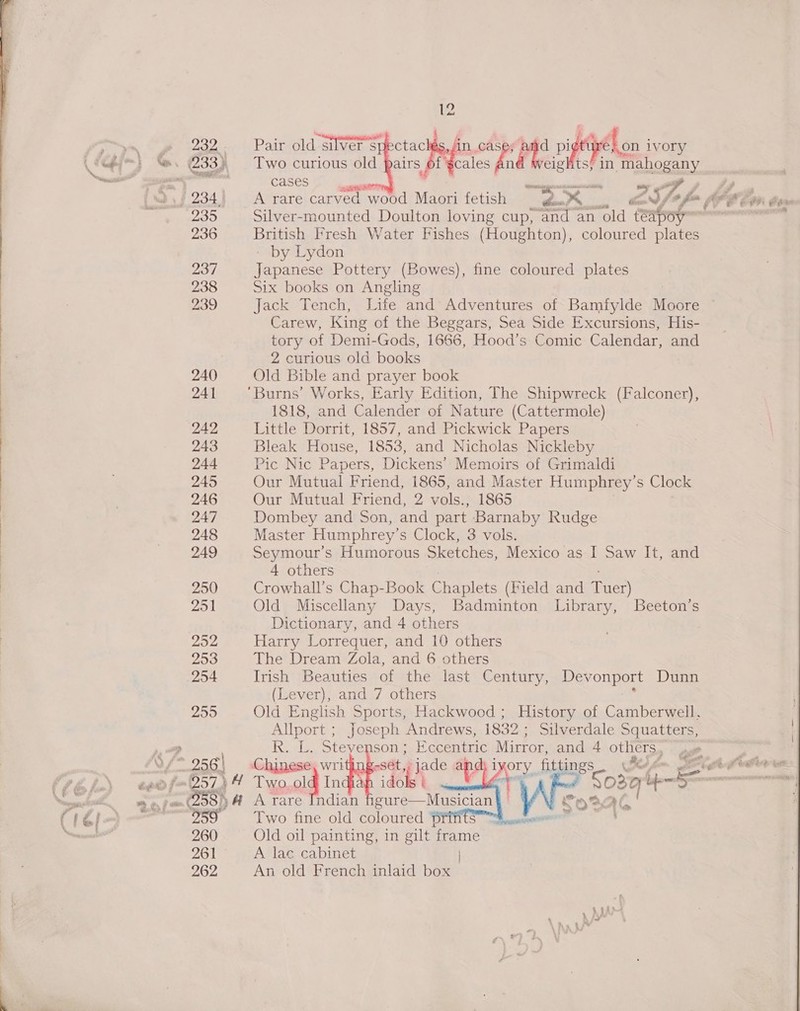 12
232 Pair old silver spectacles, in case, and picture, on ivory
(233) Two curious old pairs of scales and weights, in mahogany
cases
234 A rare carved wood Maori fetish
235 Silver-mounted Doulton loving cup, and an old teapoy
236 British Fresh Water Fishes (Houghton), coloured plates
by Lydon
237 Japanese Pottery (Bowes), fine coloured plates
238 Six books on Angling
239 Jack Tench, Life and Adventures of Bamfylde Moore
Carew, King of the Beggars, Sea Side Excursions, His-
tory of Demi-Gods, 1666, Hood's Comic Calendar, and
2 curious old books
240 Old Bible and prayer book
241 'Burns' Works, Early Edition, The Shipwreck (Falconer),
1818, and Calender of Nature (Cattermole)
242 Little Dorrit, 1857, and Pickwick Papers
243 Bleak House, 1853, and Nicholas Nickleby
244 Pic Nic Papers, Dickens' Memoirs of Grimaldi
245 Our Mutual Friend, 1865, and Master Humphrey's Clock
246 Our Mutual Friend, 2 vols., 1865
247 Dombey and Son, and part Barnaby Rudge
248 Master Humphrey's Clock, 3 vols.
249 Seymour's Humorous Sketches, Mexico as I Saw It, and
4 others
250 Crowhall's Chap-Book Chaplets (Field and Tuer)
251 Old Miscellany Days, Badminton Library, Beeton's
Dictionary, and 4 others
252 Harry Lorrequer, and 10 others
253 The Dream Zola, and 6 others
254 Irish Beauties of the last Century, Devonport Dunn
(Lever), and 7 others
255 Old English Sports, Hackwood; History of Camberwell,
Allport; Joseph Andrews, 1832; Silverdale Squatters,
R. L. Stevenson; Eccentric Mirror, and 4 others,
256 Chinese writing-set, jade and ivory fittings
(257) Two old Indian idols
(258) A rare Indian figure—Musician
259 Two fine old coloured prints
260 Old oil painting, in gilt frame
261 A lac cabinet
262 An old French inlaid box